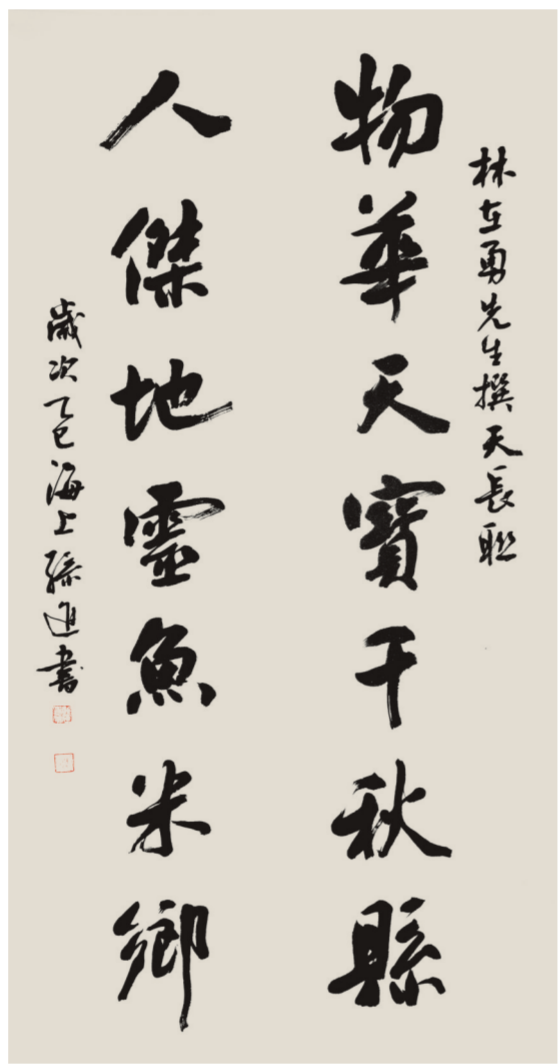 林在勇先生撰天長聯
物華天寶千秋縣
人傑地靈魚米鄉
歲次乙巳海上孫進書